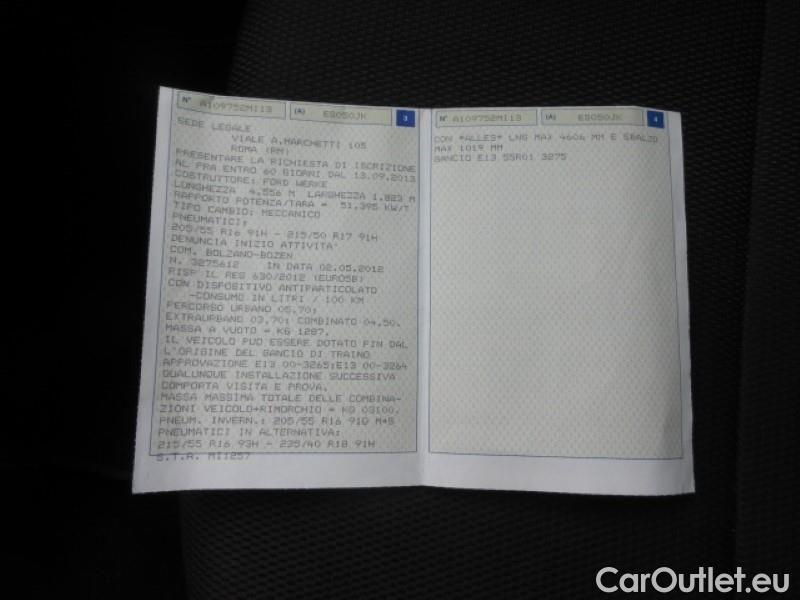 N° A109752MI13 (A) ES050JK 3
SEDE LEGALE
VIALE A.MARCHETTI 105
ROMA (RM)
PRESENTARE LA RICHIESTA DI ISCRIZIONE
AL PRA ENTRO 60 GIORNI DAL 13.09.2013
COSTRUTTORE: FORD WERKE
LUNGHEZZA 4.556 M LARGHEZZA 1.823 M
RAPPORTO POTENZA/TARA = 51.395 KW/T
TIPO CAMBIO: MECCANICO
PNEUMATICI:
205/55 R16 91H - 215/50 R17 91H
DENUNCIA INIZIO ATTIVITA'
COM. BOLZANO-BOZEN
N. 3275612 IN DATA 02.05.2012
RISP IL REG 630/2012 (EURO5B)
CON DISPOSITIVO ANTIPARTICOLATO
-CONSUMO IN LITRI / 100 KM
PERCORSO URBANO 05.70;
EXTRAURBANO 03.70; COMBINATO 04.50.
MASSA A VUOTO = KG 1287.
IL VEICOLO PUO ESSERE DOTATO FIN DAL
L'ORIGINE DEL GANCIO DI TRAINO
APPROVAZIONE E13 00-3265;E13 00-3264
QUALUNQUE INSTALLAZIONE SUCCESSIVA
COMPORTA VISITA E PROVA.
MASSA MASSIMA TOTALE DELLE COMBINA-
ZIONI VEICOLO+RIMORCHIO = KG 03100.
PNEUM. INVERN.: 205/55 R16 91Q M+S
PNEUMATICI IN ALTERNATIVA:
215/55 R16 93H - 235/40 R18 91H
S.T.A. MI1257
N° A109752MI13 (A) ES050JK 4
CON *ALLES* LNG MAX 4606 MM E SBALZO
MAX 1019 MM
GANCIO E13 55R01 3275
CarOutlet.eu